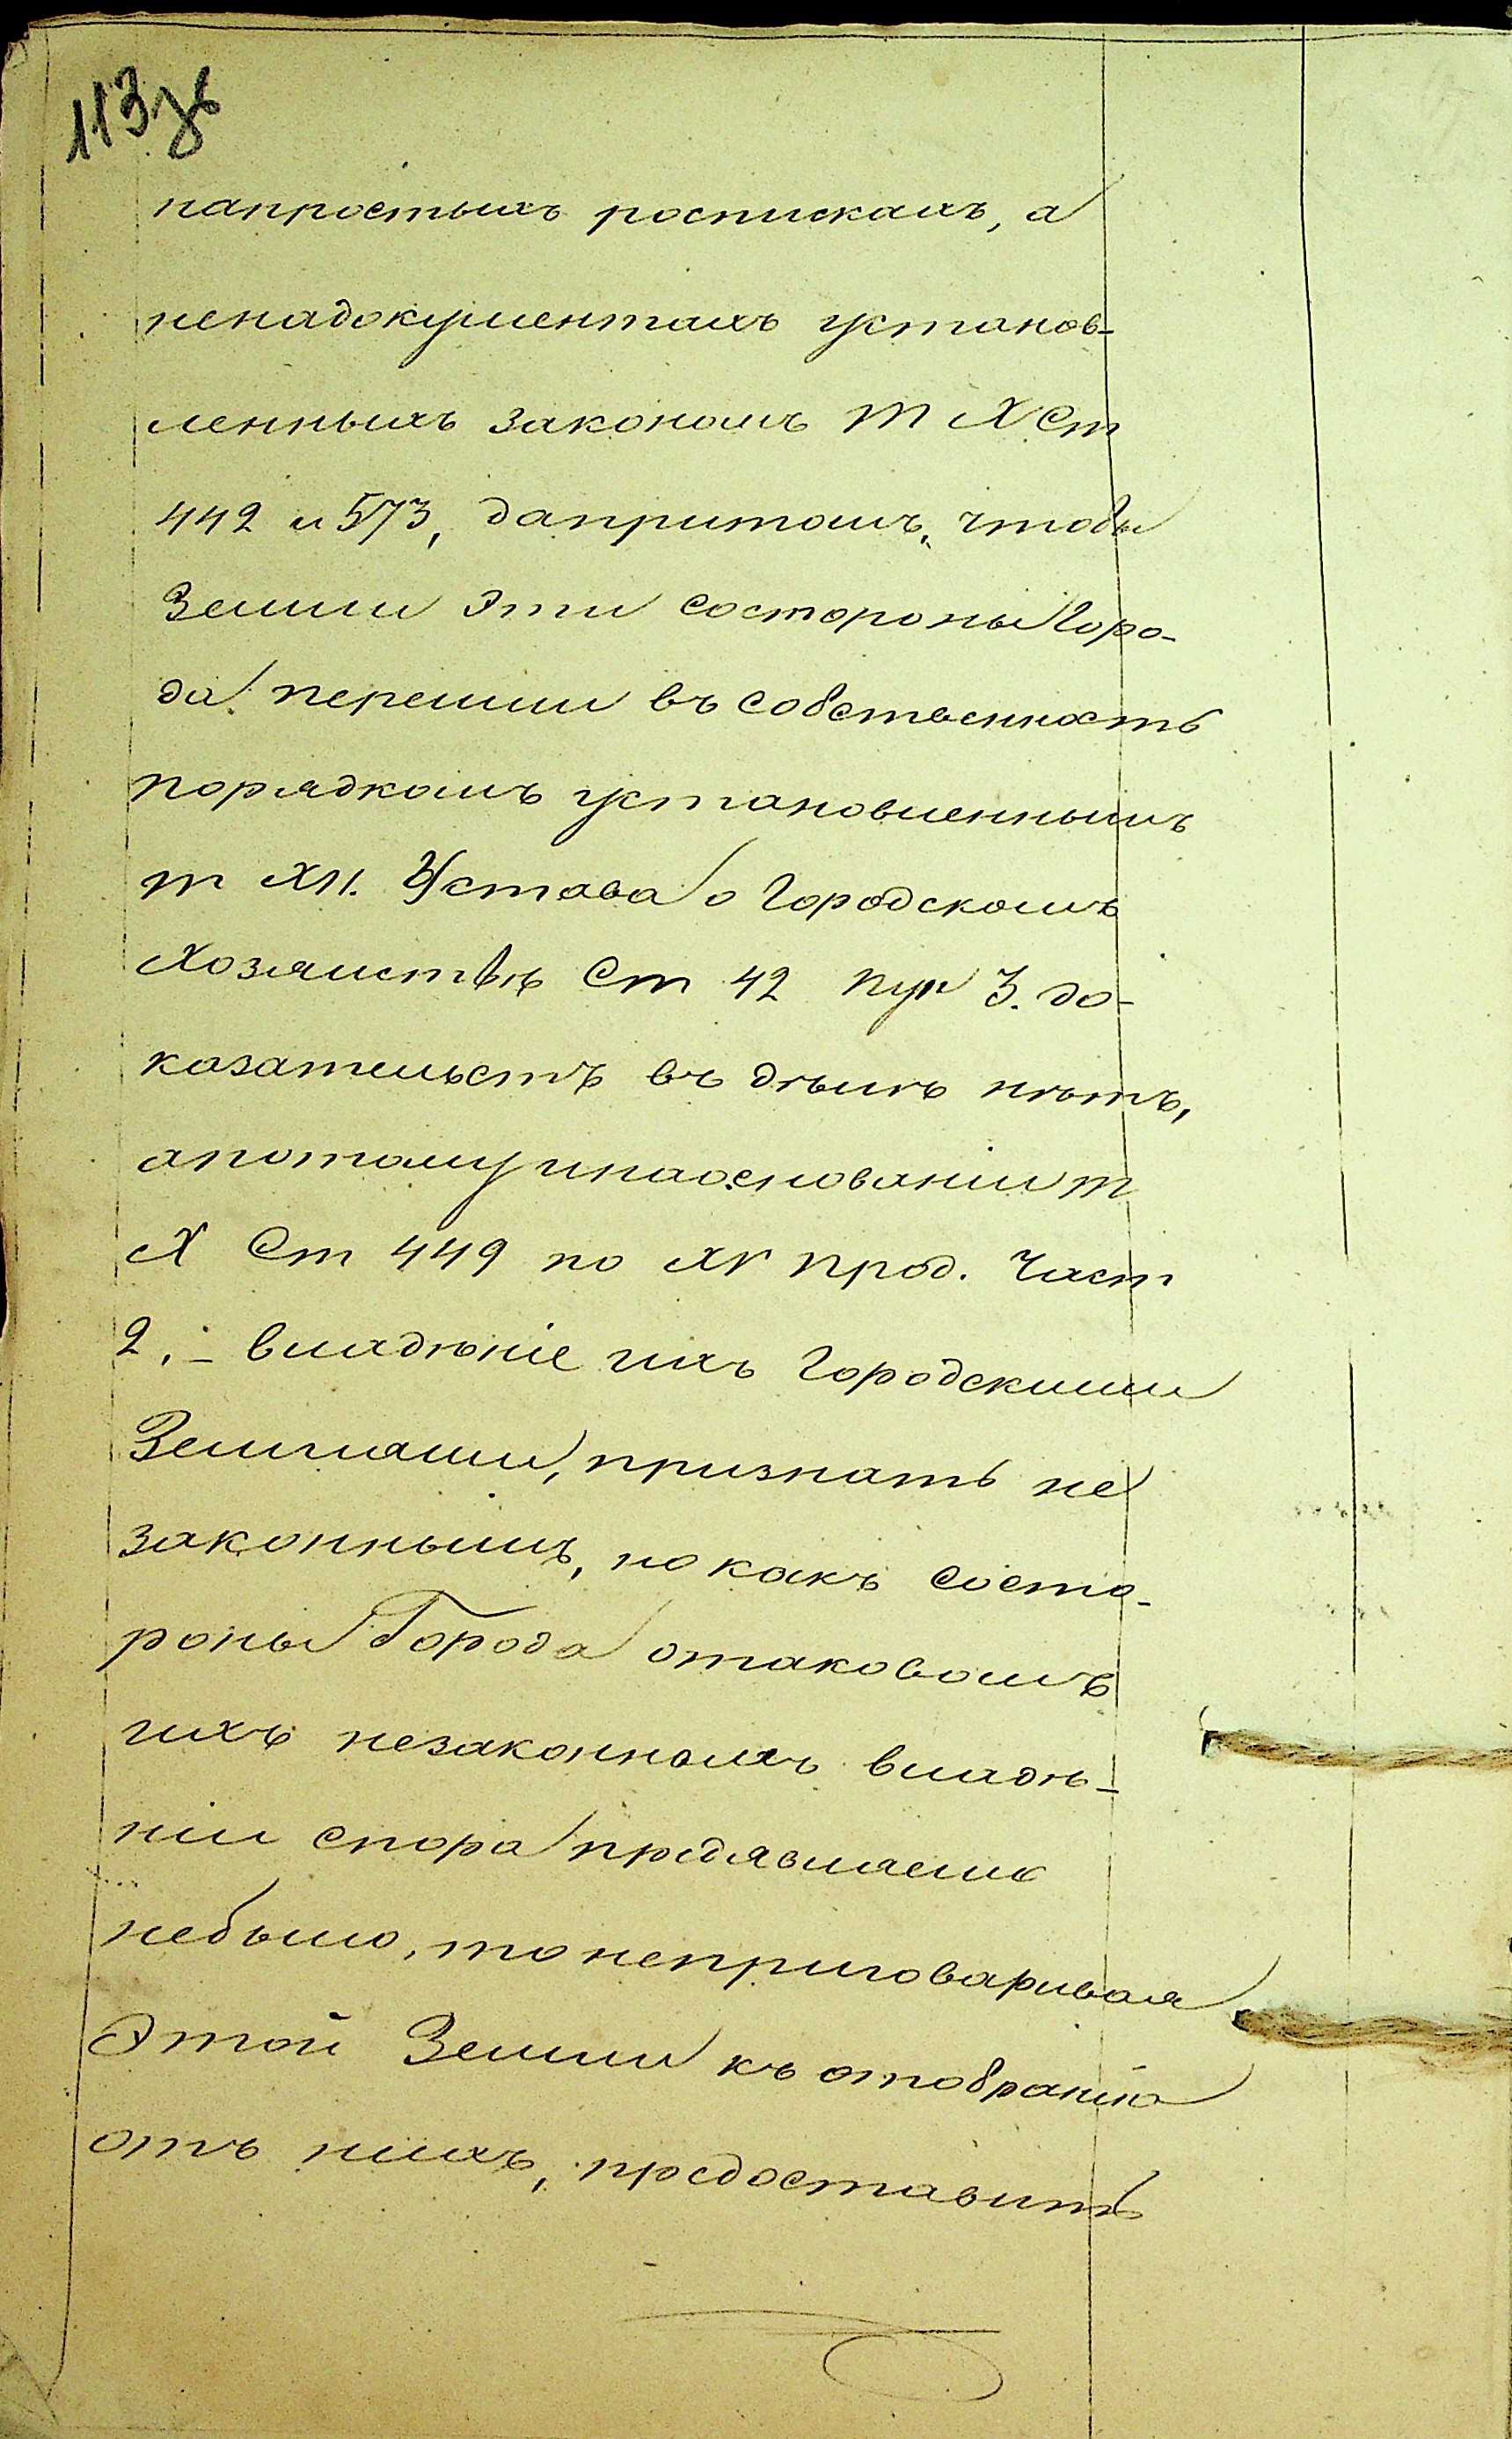 113 об
напростыхъ роспискахъ, а
ненадокументахъ установ-
ленныхъ закономъ т Х Ст
442 и 573, дапритомъ, чтобы
Земли эти состороны Горо-
да перешли въ собственность
порядкомъ установленнымъ
т XII. Устава о Городскомъ
Хозяистве Ст 42 пун 3. до-
казательстъ въ дѣлѣ нѣтъ,
апотому инаоснованіи т
Х Ст 449 по XV прод. Част
2, - владѣніе ихъ Городскими
Землями, признать не
законнымъ, но какъ состо-
роны Города отаковомъ
ихъ незаконномъ владѣ-
ніи спора предявляемо
небыло, то неприговаривая
Этой Земли къ отобранію
отъ нихъ, предоставить